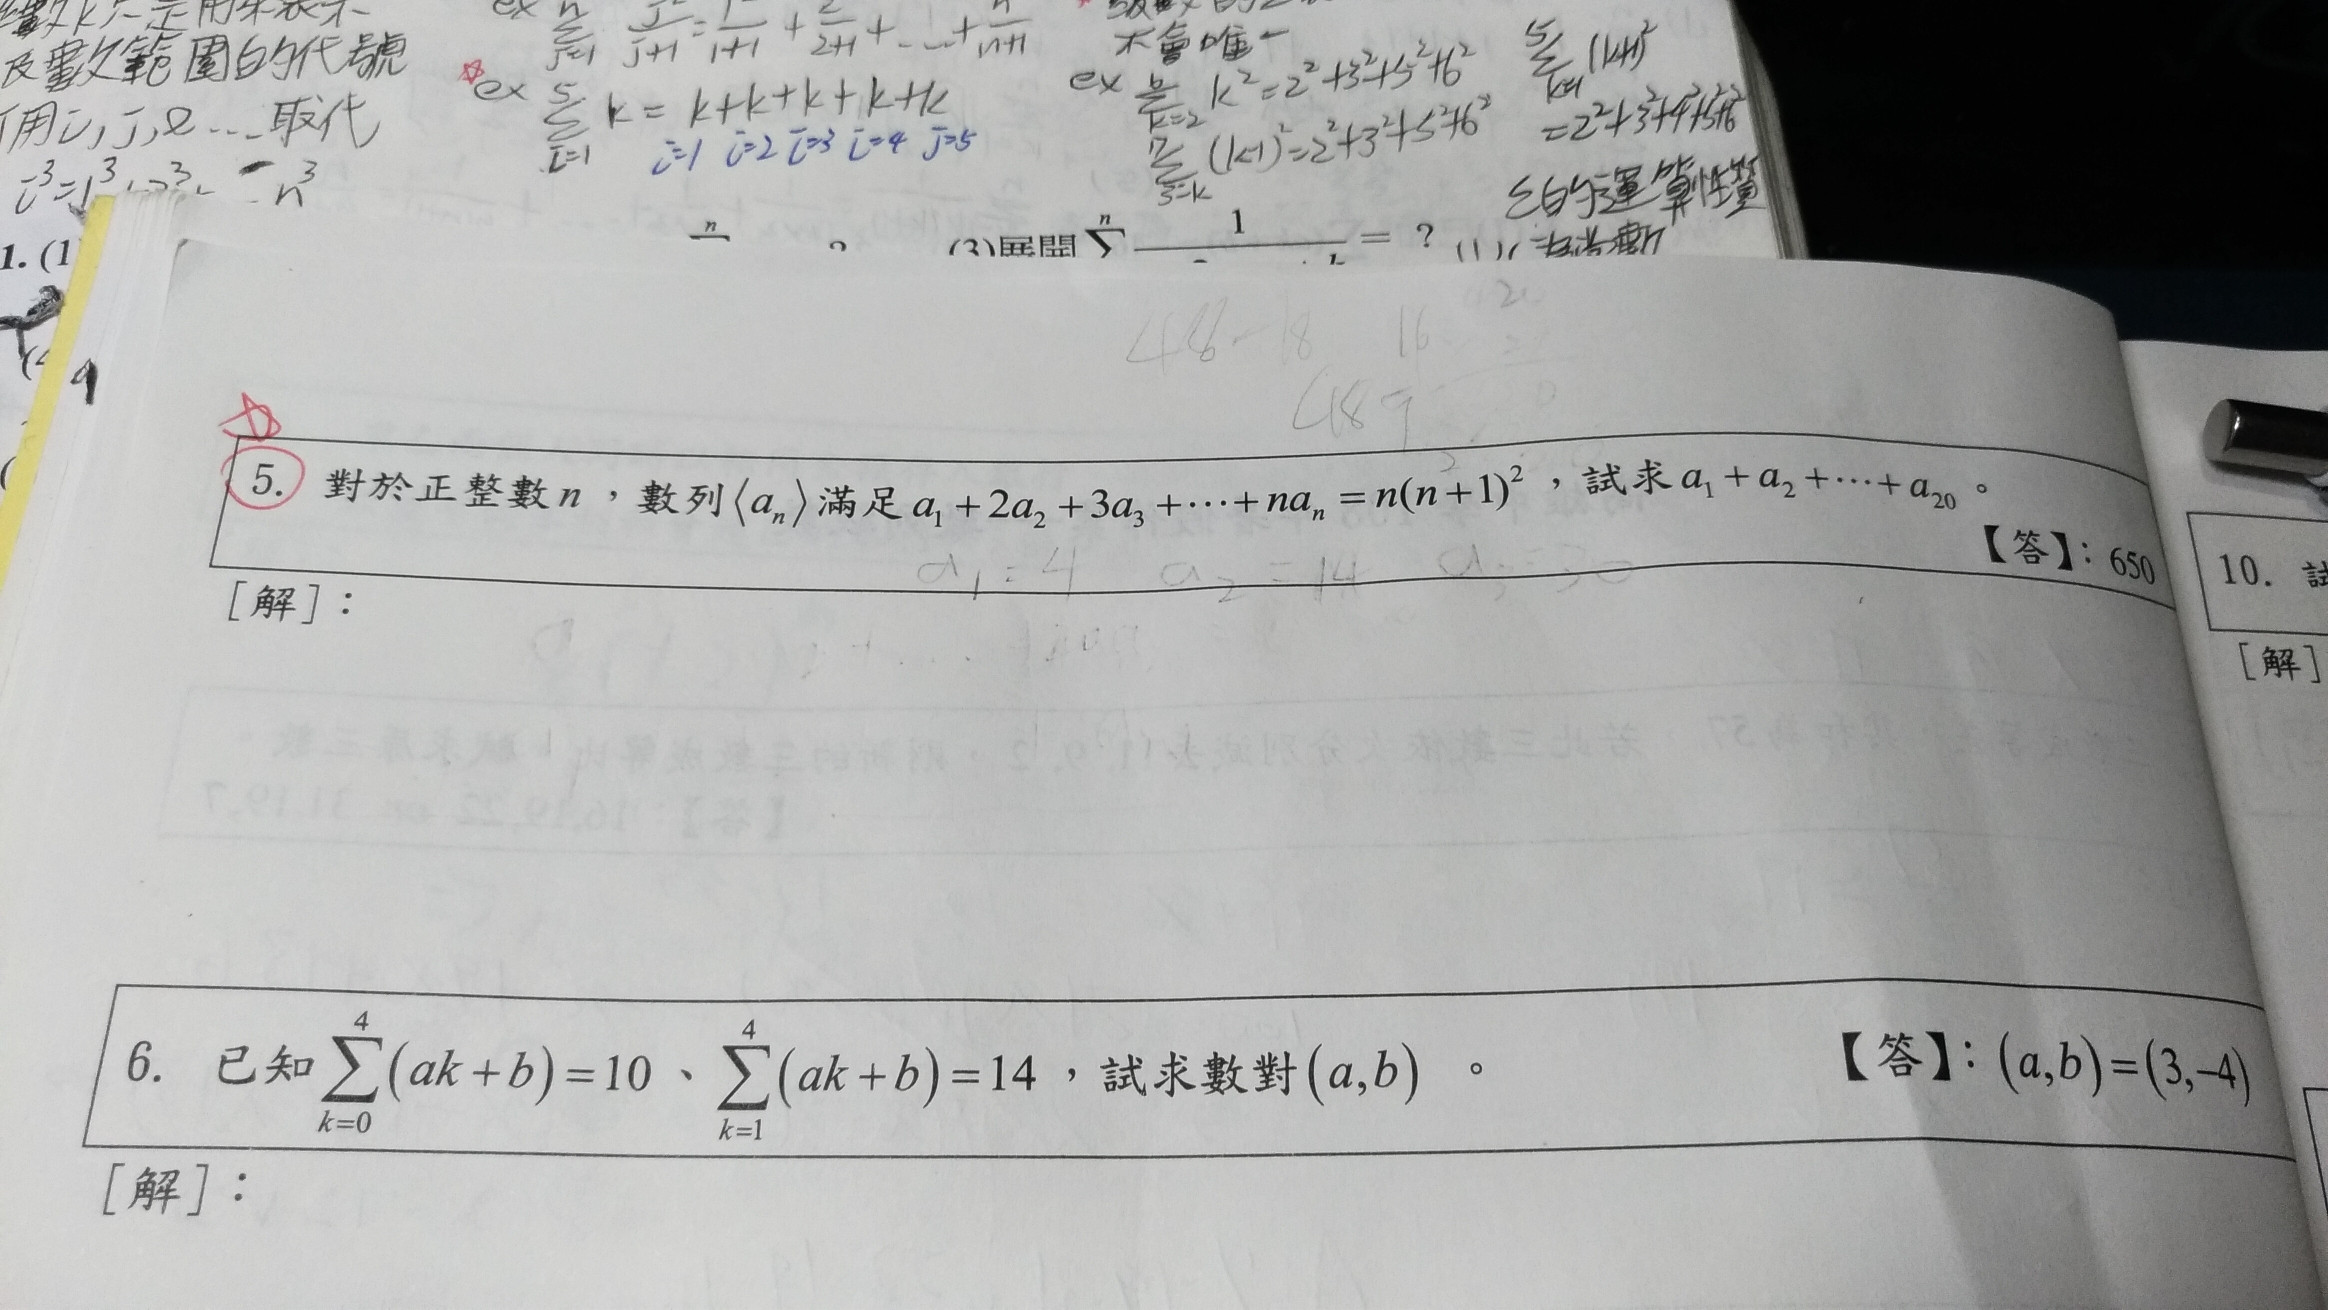 及數範圍的代號
用i,j,l....取代
ex \sum_{j=1}^{n} \frac{j^2}{j+1} = \frac{1^2}{1+1} + \frac{2^2}{2+1} + ... + \frac{n^2}{n+1}
ex \sum_{i=1}^{5} k = k+k+k+k+k
i=1 i=2 i=3 i=4 j=5
不會唯一
ex k² = 2²+3²+5²+6²
(k-1)² = 2²+3²+5²+6²
\sum_{k=1}^{5} (k+1)²
= 2²+3²+4²+5²+6²
Σ的運算性質
1. (1
(3)展開 \sum^{n} 1 = ?
48-18 16
489
5. 對於正整數n,數列⟨aₙ⟩滿足a₁+2a₂+3a₃+⋯+naₙ=n(n+1)²,試求a₁+a₂+⋯+a₂₀。
【答】:650
a₁=4 a₂=14 a₃=30
[解]:
6. 已知\sum_{k=0}^{4}(ak+b)=10、\sum_{k=1}^{4}(ak+b)=14,試求數對(a,b)。 【答】:(a,b)=(3,-4)
[解]:
10. 試
[解]